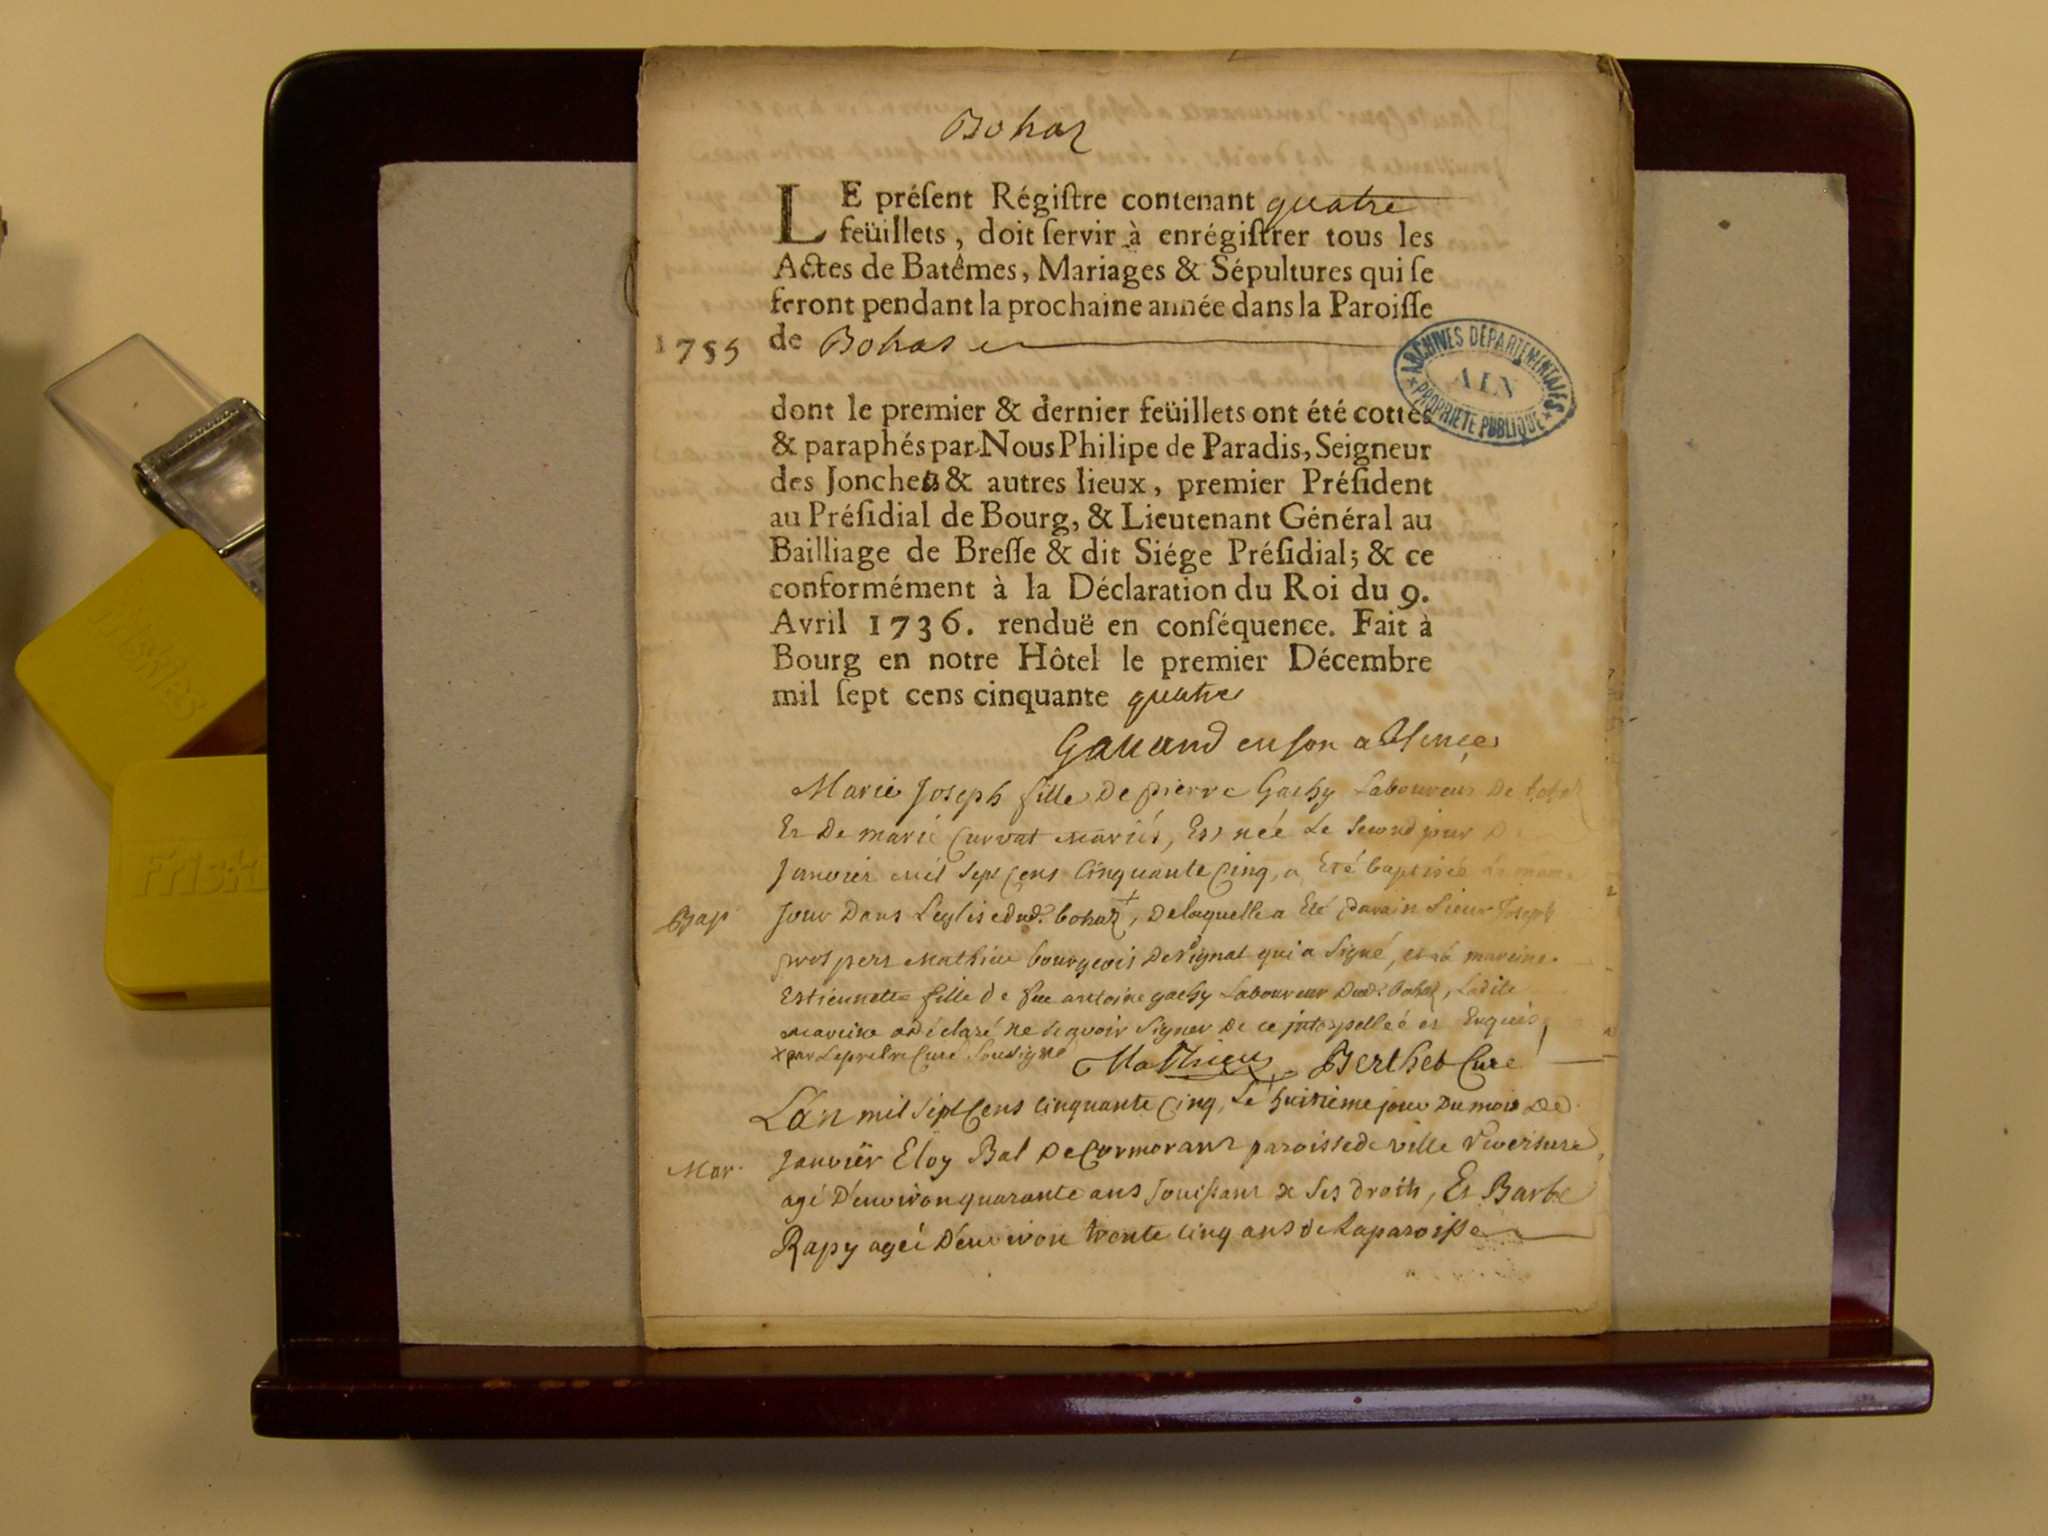 Bohaz
LE préſent Régiſtre contenant quatre
feüillets, doit ſervir à enrégiſtrer tous les
Actes de Batêmes, Mariages & Sépultures qui ſe
feront pendant la prochaine année dans la Paroiſſe
1755 de Bohas
ARCHIVES DÉPARTEMENTALES
AIN
PROPRIETE PUBLIQUE
dont le premier & dernier feüillets ont été cottés
& paraphés par Nous Philipe de Paradis, Seigneur
des Jonches & autres lieux, premier Préſident
au Préſidial de Bourg, & Lieutenant Général au
Bailliage de Breſſe & dit Siége Préſidial; & ce
conformément à la Déclaration du Roi du 9.
Avril 1736. renduë en conſéquence. Fait à
Bourg en notre Hôtel le premier Décembre
mil ſept cens cinquante quatre
en son absence
Marie Joseph fille De pierre Gachy Laboureur De bohaz
Et De marie Curvat Mariés, Est née Le Second jour De
Janvier mil Sept Cens Cinquante Cinq, a Eté baptisée le meme
Bap Jour Dans L'eglise dud. bohaz +, De laquelle a Eté parain Sieur Joseph
prospere Mathieu bourgeois De Vignat qui a Signé, et la maraine
Estiennette fille de feu antoine gachy Laboureur Dud. bohaz, Ladite
maraine a déclaré ne Sçavoir Signer De ce jnterpelleé et Enquis
x par Le pretre Curé Sousigné Mathieu Berthet Curé
L'an mil Sept Cens Cinquante Cinq, Le huitieme jour Du mois De
Mar. Janvier Eloy Bal De Cormorant paroisse de ville Reversure
agé D'environ quarante ans Jouissant de Ses droits, Et Barbe
Rapy ageé D'environ trente Cinq ans de La paroisse
Friskies
Friski